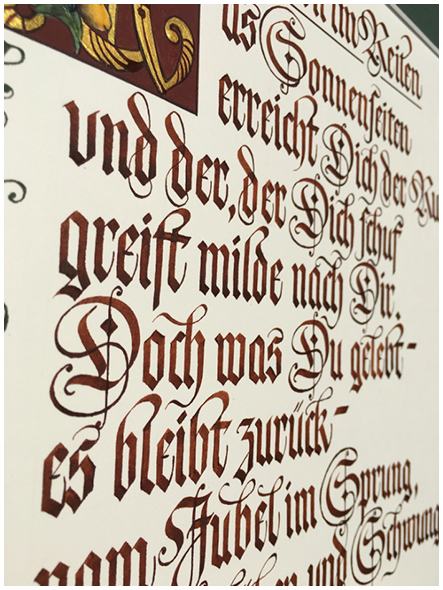 im Reiten
Sonnenseiten
erreicht Dich der
vnd der, der Dich schuf
greift milde nach Dir.
Doch was Du gelebt-
es bleibt zurück-
vom Jubel im Sprung,
und Schwung